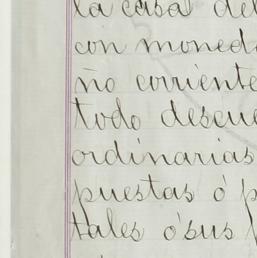 la casa del
con moneda
ño corriente
todo descue
ordinarias
puestas ó p
tales ó sus